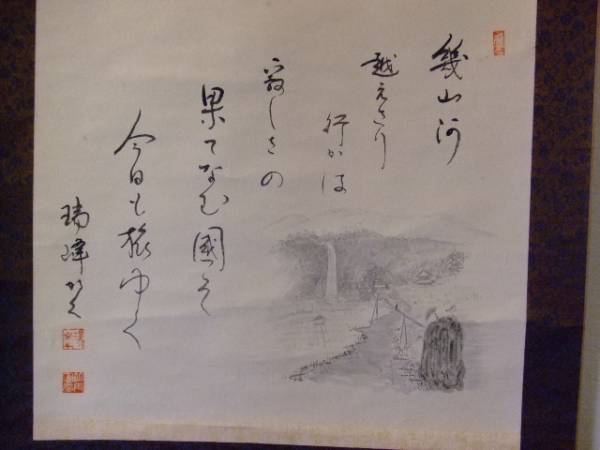 幾山河
越えさり
行かは
寂しさの
果てなむ國そ
今日も旅ゆく
瑞峰かく